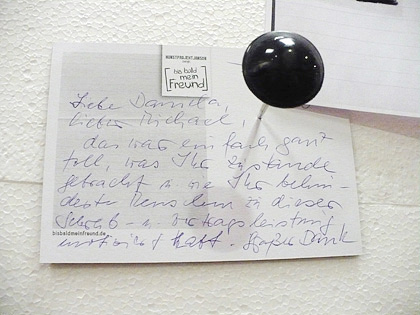 bis bald
mein
[Freund]
Liebe Daniela,
lieber Michael,
das war einfach ganz
toll, was Ihr zustande
gebracht u. wie Ihr behin-
derte Menschen zu dieser
Schreib- u. Vortragsleistung
motiviert habt. Großer Dank
bisbaldmeinfreund.de